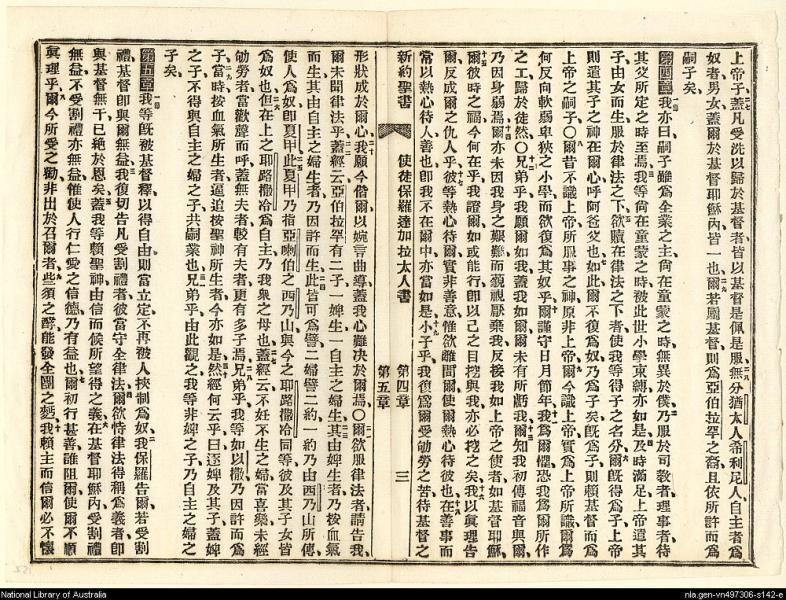 上帝子蓋凡受洗以歸於基督者皆以基督是佩是服無分猶太人希利尼人自主者為
奴者男女蓋爾於基督耶穌內皆一也爾若屬基督則為亞伯拉罕之裔且依所許而為
嗣子矣
第四章我亦曰嗣子雖為全業之主尚在童蒙之時無異於僕乃服於司教者理事者待
其父所定之時至焉我等尚在童蒙之時被此世小學束縛亦如是及時滿足上帝遣其
子由女而生服於律法之下欲贖在律法之下者使我等得子之名分爾既得為子上帝
則遣其子之神在爾心呼阿爸父也如此爾不復為奴乃為子矣既為子則賴基督而為
上帝之嗣子〇爾昔不識上帝所服事之神原非上帝爾今識上帝實為上帝所識爾為
何反向軟弱卑狹之小學而欲復為其奴乎爾謹守日月節年我為爾懼恐我為爾所作
之工歸於徒然〇兄弟乎我願爾如我蓋我如爾爾未有所虧我爾知我初傳福音與爾
乃因身弱焉爾亦未因我身之艱難而藐視厭棄我反接我如上帝之使者如基督耶穌
爾彼時之福今何在乎我證爾如或能行即以己之目挖與我亦必挖之矣我以眞理告
爾反成爾之仇人乎彼等熱心待爾實非善意惟欲離間爾使爾熱心待彼也在善事而
常以熱心待人善也即我不在爾中亦當如是小子乎我復為爾受劬勞之苦待基督之
新約聖書 使徒保羅達加拉太人書 第四章 第五章 三
形狀成於爾心我願今偕爾以婉言曲導蓋我心難决於爾焉〇爾欲服律法者請告我
爾未聞律法乎蓋經云亞伯拉罕有二子一婢生一自主之婦生其由婢生者乃按血氣
而生其由自主之婦生者乃因許而生此皆可為譬二婦譬二約一約乃由西乃山所傳
使人為奴即夏甲此夏甲乃指亞喇伯之西乃山與今之耶路撒冷同等彼及其子女皆
為奴也但在上之耶路撒冷為自主乃我衆之母也蓋經云不妊不生之婦當喜樂未經
劬勞者當歡聲而呼蓋無夫者較有夫者更有多子焉兄弟乎我等如以撒乃因許而為
子當時按血氣所生者逼迫按聖神所生者今亦如是然經何云乎曰逐婢及其子蓋婢
之子不得與自主之婦之子共嗣業也兄弟乎由此觀之我等非婢之子乃自主之婦之
子矣
第五章我等既被基督釋以得自由則當立定不再被人挾制為奴我保羅告爾若受割
禮基督即與爾無益我復切告凡受割禮者彼當守全律法爾欲恃律法得稱為義者即
與基督無干已絶於恩矣蓋我等賴聖神由信而候所望得之義在基督耶穌內受割禮
無益不受割禮亦無益惟使人行仁愛之信德乃有益也爾初行甚善誰阻爾使爾不順
眞理乎爾今所受之勸非出於召爾者些須之酵能發全團之麪我賴主而信爾必不懷
National Library of Australia
nla.gen-vn497306-s142-e